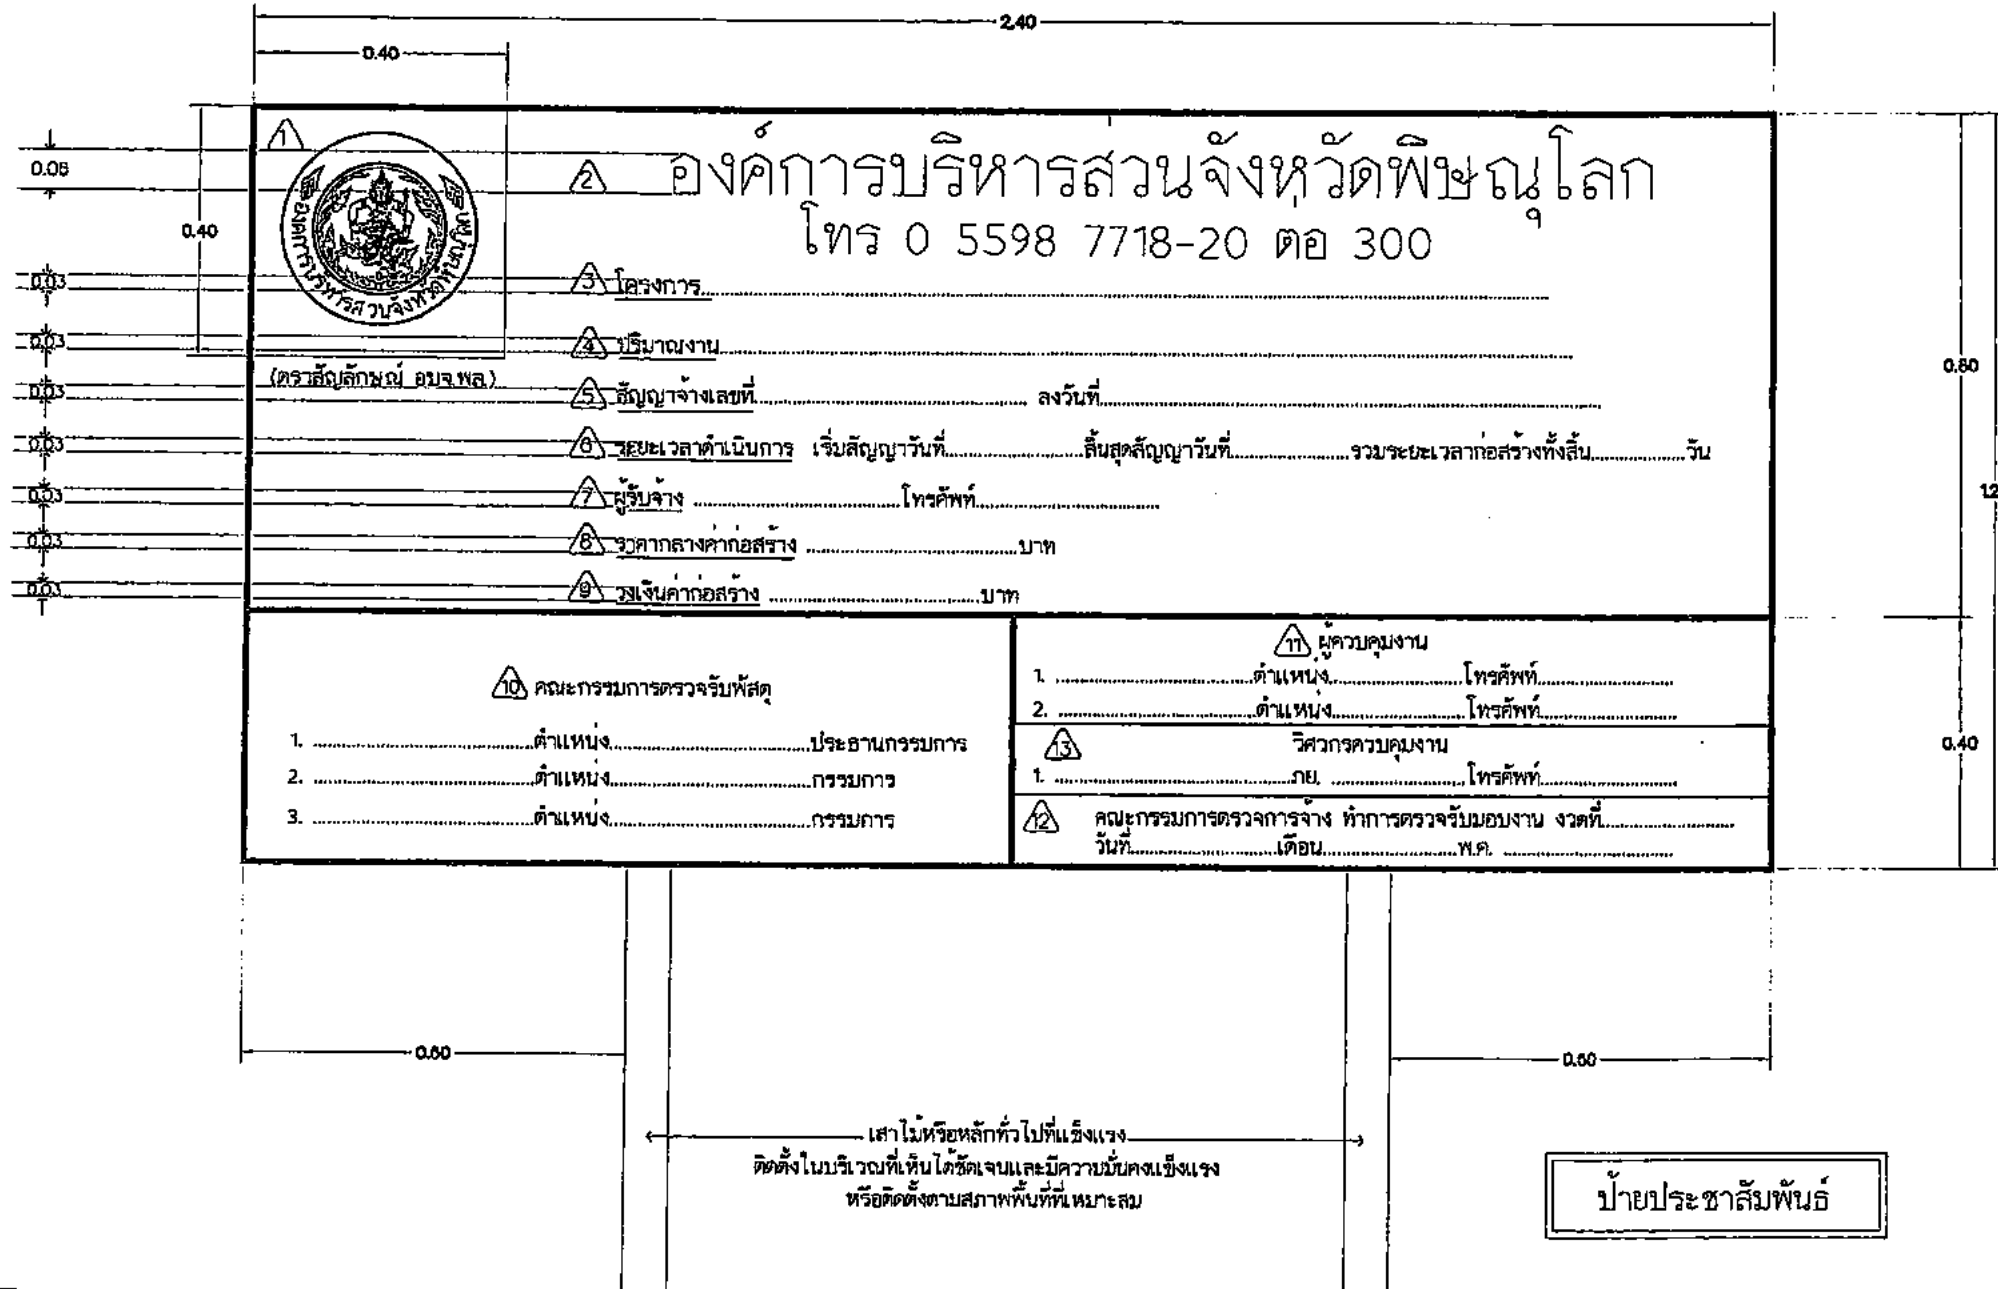 2.40
0.40
1
0.06
0.40
องค์การบริหารส่วนจังหวัดพิษณุโลก
2
โทร 0 5598 7718-20 ต่อ 300
0.03
3 โครงการ
0.03
4 ปริมาณงาน
0.80
(ตราสัญลักษณ์ อบจ.พล.)
0.03
5 สัญญาจ้างเลขที่ ลงวันที่
0.03
6 ระยะเวลาดำเนินการ เริ่มสัญญาวันที่ สิ้นสุดสัญญาวันที่ รวมระยะเวลาก่อสร้างทั้งสิ้น วัน
0.03
7 ผู้รับจ้าง โทรศัพท์
0.03
8 ราคากลางค่าก่อสร้าง บาท
0.03
9 วงเงินค่าก่อสร้าง บาท
10 คณะกรรมการตรวจรับพัสดุ
1. ตำแหน่ง ประธานกรรมการ
2. ตำแหน่ง กรรมการ
3. ตำแหน่ง กรรมการ
11 ผู้ควบคุมงาน
1. ตำแหน่ง โทรศัพท์
2. ตำแหน่ง โทรศัพท์
13 วิศวกรควบคุมงาน
1. ภย. โทรศัพท์
12 คณะกรรมการตรวจการจ้าง ทำการตรวจรับมอบงาน งวดที่
วันที่ เดือน พ.ศ.
0.40
0.60
0.60
เสาไม้หรือหลักทั่วไปที่แข็งแรง
ติดตั้งในบริเวณที่เห็นได้ชัดเจนและมีความมั่นคงแข็งแรง
หรือติดตั้งตามสภาพพื้นที่ที่เหมาะสม
ป้ายประชาสัมพันธ์